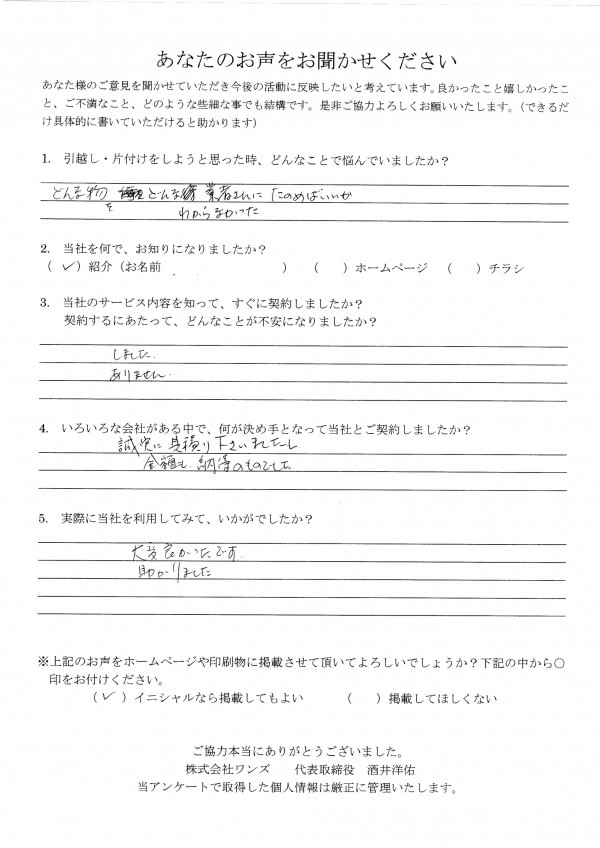 あなたのお声をお聞かせください
あなた様のご意見を聞かせていただき今後の活動に反映したいと考えています。良かったこと嬉しかったこ
と、ご不満なこと、どのような些細な事でも結構です。是非ご協力よろしくお願いいたします。（できるだ
け具体的に書いていただけると助かります）
1. 引越し・片付けをしようと思った時、どんなことで悩んでいましたか？
どんな物を どんな 業者さんに たのめばいいか
わからなかった
2. 当社を何で、お知りになりましたか？
（ ✓ ）紹介（お名前 ） （ ）ホームページ （ ）チラシ
3. 当社のサービス内容を知って、すぐに契約しましたか？
契約するにあたって、どんなことが不安になりましたか？
しました.
ありません.
4. いろいろな会社がある中で、何が決め手となって当社とご契約しましたか？
誠実に 見積り 下さいましたし
金額も 納得のものでした
5. 実際に当社を利用してみて、いかがでしたか？
大変良かったです.
助かりました
※上記のお声をホームページや印刷物に掲載させて頂いてよろしいでしょうか？下記の中から〇
印をお付けください。
（ ✓ ）イニシャルなら掲載してもよい （ ）掲載してほしくない
ご協力本当にありがとうございました。
株式会社ワンズ 代表取締役 酒井洋佑
当アンケートで取得した個人情報は厳正に管理いたします。